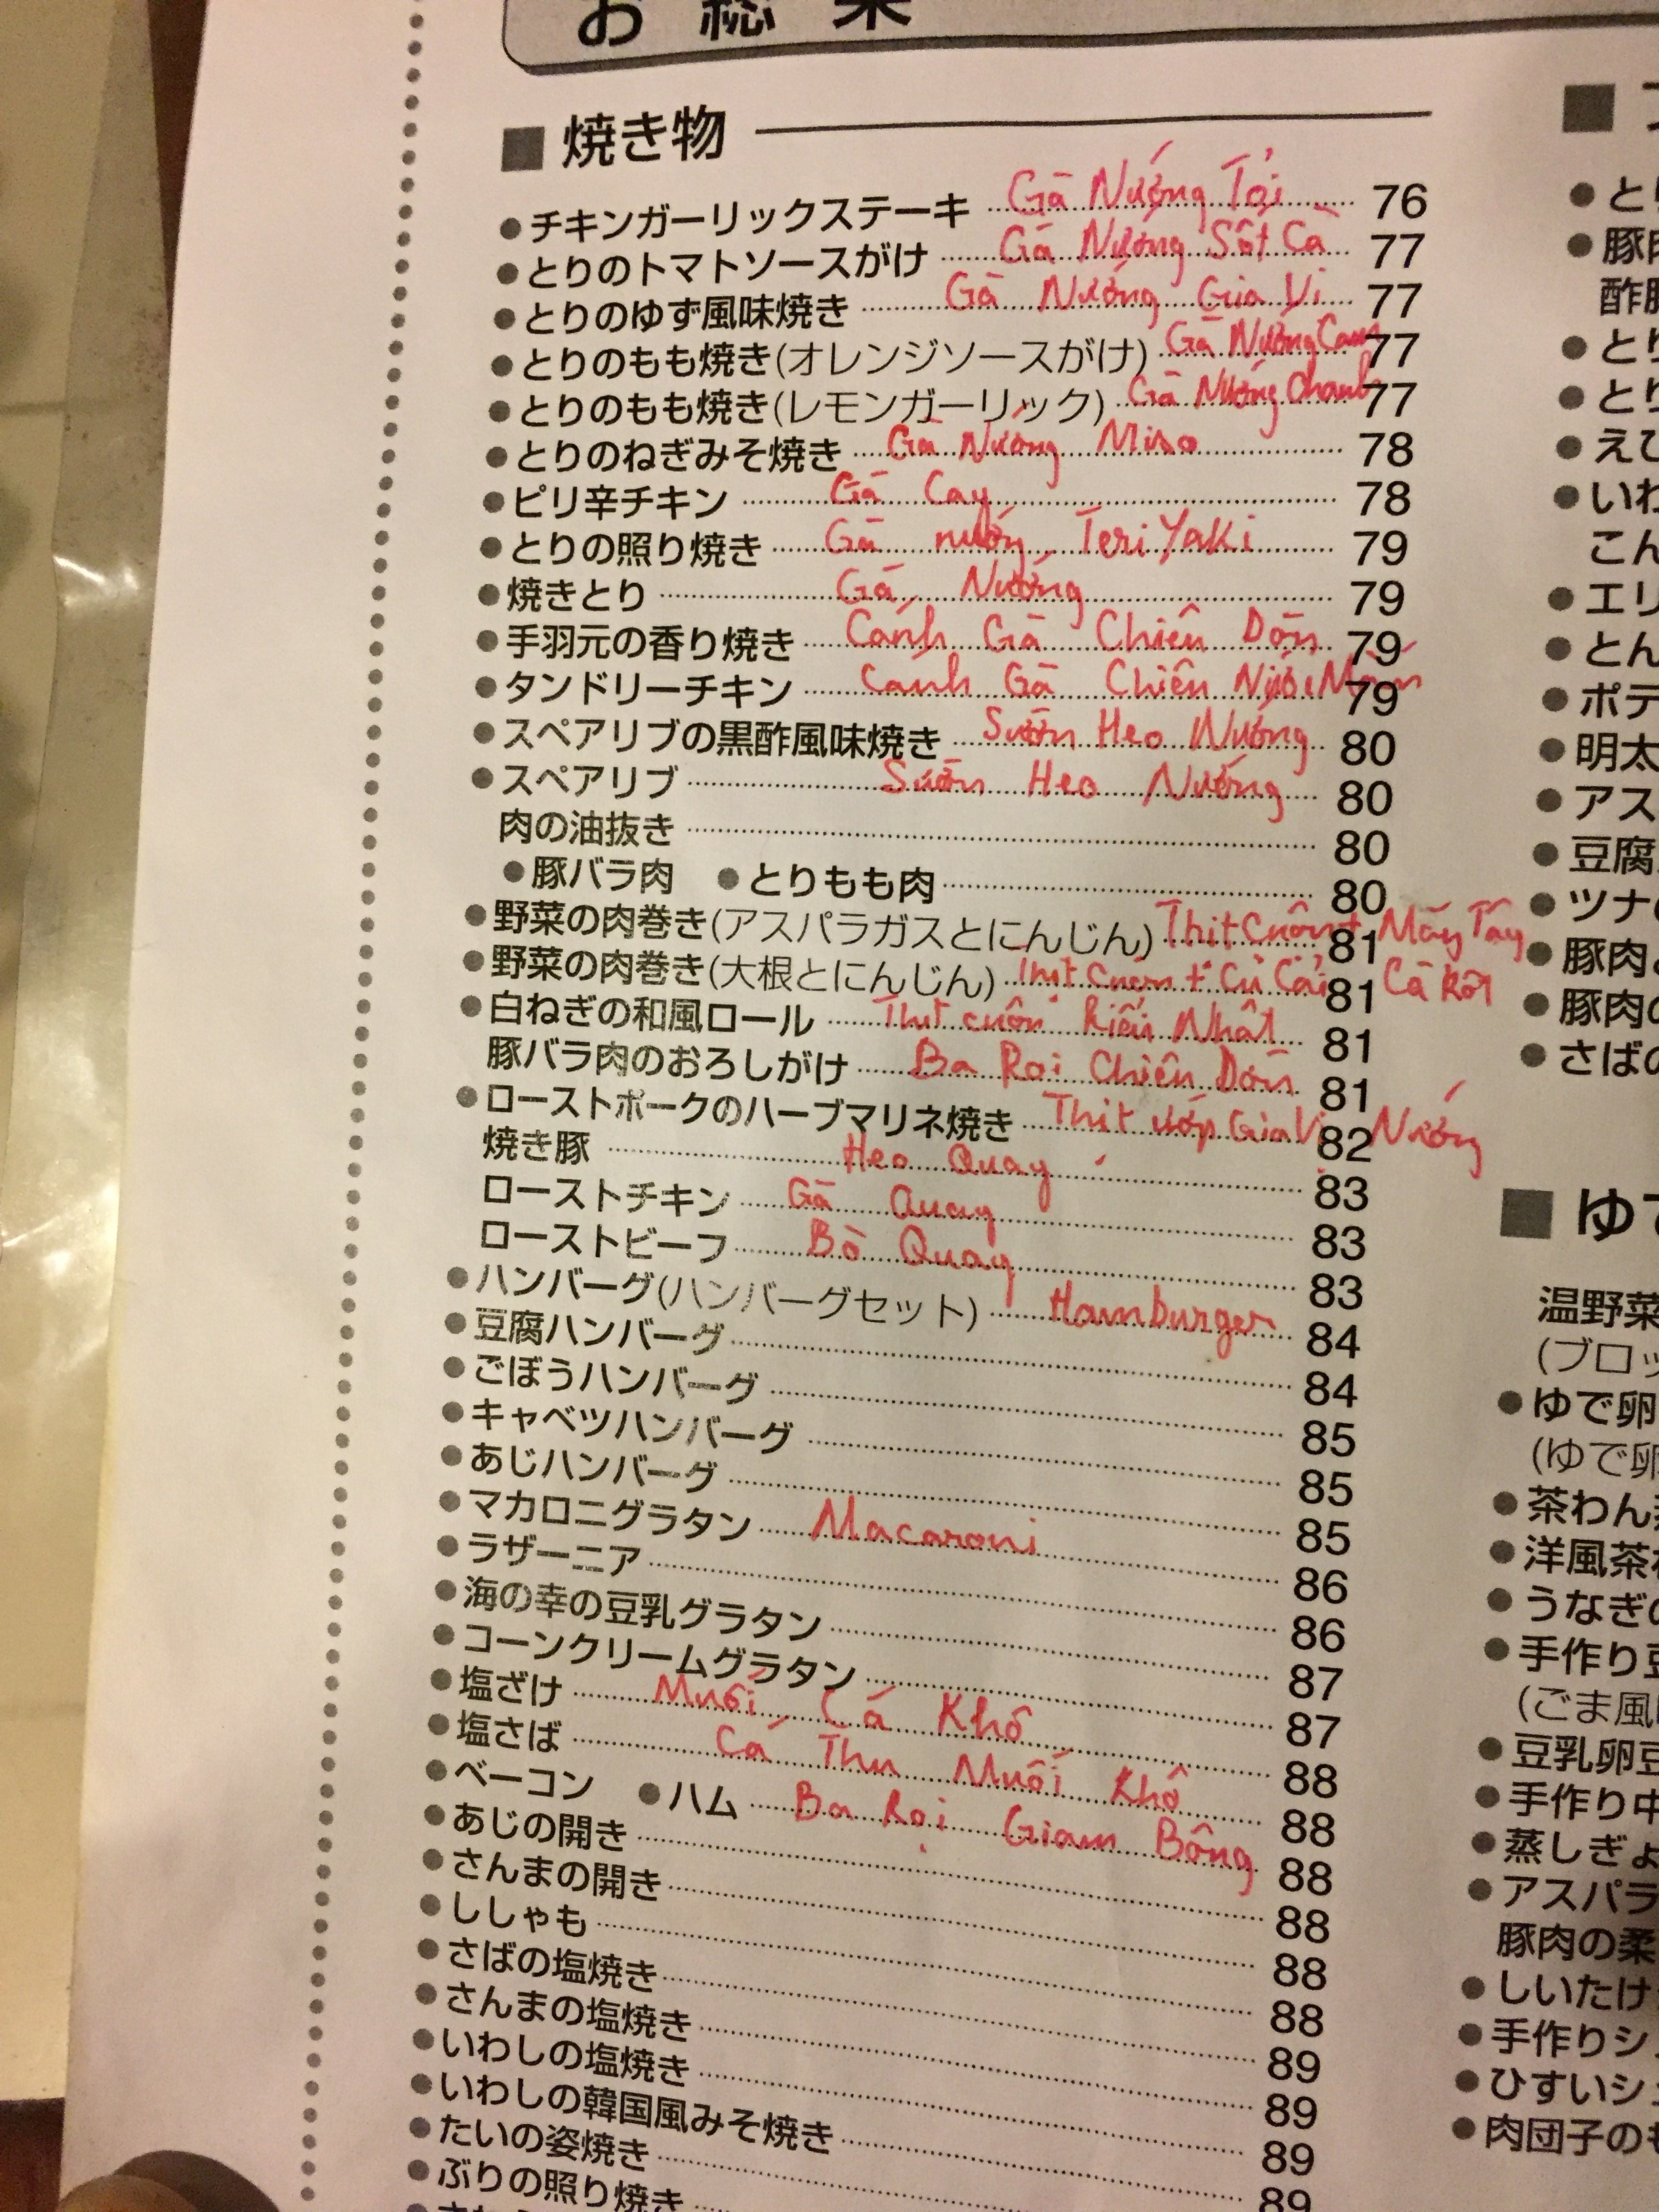 お総菜
■ 焼き物
●チキンガーリックステーキ Gà Nướng Tỏi 76
●とりのトマトソースがけ Gà Nướng Sốt Cà 77
●とりのゆず風味焼き Gà Nướng Gia Vị 77
●とりのもも焼き(オレンジソースがけ) Gà Nướng Cam 77
●とりのもも焼き(レモンガーリック) Gà Nướng Chanh 77
●とりのねぎみそ焼き Gà Nướng Miso 78
●ピリ辛チキン Gà Cay 78
●とりの照り焼き Gà nướng TeriYaki 79
●焼きとり Gà Nướng 79
●手羽元の香り焼き Cánh Gà Chiên Dòn 79
●タンドリーチキン Cánh Gà Chiên Nước Mắm 79
●スペアリブの黒酢風味焼き Sườn Heo Nướng 80
●スペアリブ Sườn Heo Nướng 80
肉の油抜き 80
●豚バラ肉 ●とりもも肉 80
●野菜の肉巻き(アスパラガスとにんじん) Thịt Cuộn + Măng Tây 81
●野菜の肉巻き(大根とにんじん) Thịt cuộn + Củ Cải Cà Rốt 81
●白ねぎの和風ロール Thịt cuộn Kiểu Nhật 81
豚バラ肉のおろしがけ Ba Rọi Chiên Dòn 81
●ローストポークのハーブマリネ焼き Thịt ướp Gia Vị Nướng 82
焼き豚 Heo Quay 83
ローストチキン Gà Quay 83
ローストビーフ Bò Quay 83
●ハンバーグ(ハンバーグセット) Hamburger 84
●豆腐ハンバーグ 84
●ごぼうハンバーグ 85
●キャベツハンバーグ 85
●あじハンバーグ 85
●マカロニグラタン Macaroni 86
●ラザーニア 86
●海の幸の豆乳グラタン 87
●コーンクリームグラタン 87
●塩ざけ Muối Cá Khô 88
●塩さば Cá Thu Muối Khô 88
●ベーコン ●ハム Ba Rọi Giam Bông 88
●あじの開き 88
●さんまの開き 88
●ししゃも 88
●さばの塩焼き 89
●さんまの塩焼き 89
●いわしの塩焼き 89
●いわしの韓国風みそ焼き 89
●たいの姿焼き
●ぶりの照り焼き
■
●とり
●豚肉
酢豚
●とり
●とり
●えび
●いわ
こん
●エリ
●とん
●ポテ
●明太
●アス
●豆腐
●ツナの
●豚肉と
●豚肉の
●さばの
■ ゆで
温野菜
(ブロッ
●ゆで卵
(ゆで卵
●茶わん蒸
●洋風茶わ
●うなぎの
●手作り豆
(ごま風
●豆乳卵豆
●手作り中
●蒸しぎょ
●アスパラ
豚肉の柔
●しいたけ
●手作りシ
●ひすいシュ
●肉団子のも